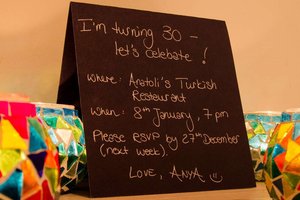 I'm turning 30 –
let's celebrate !
where: Anatoli's Turkish
Restaurant
when: 8th January, 7 pm
Please RSVP by 27th December
(next week).
LOVE, ANYA